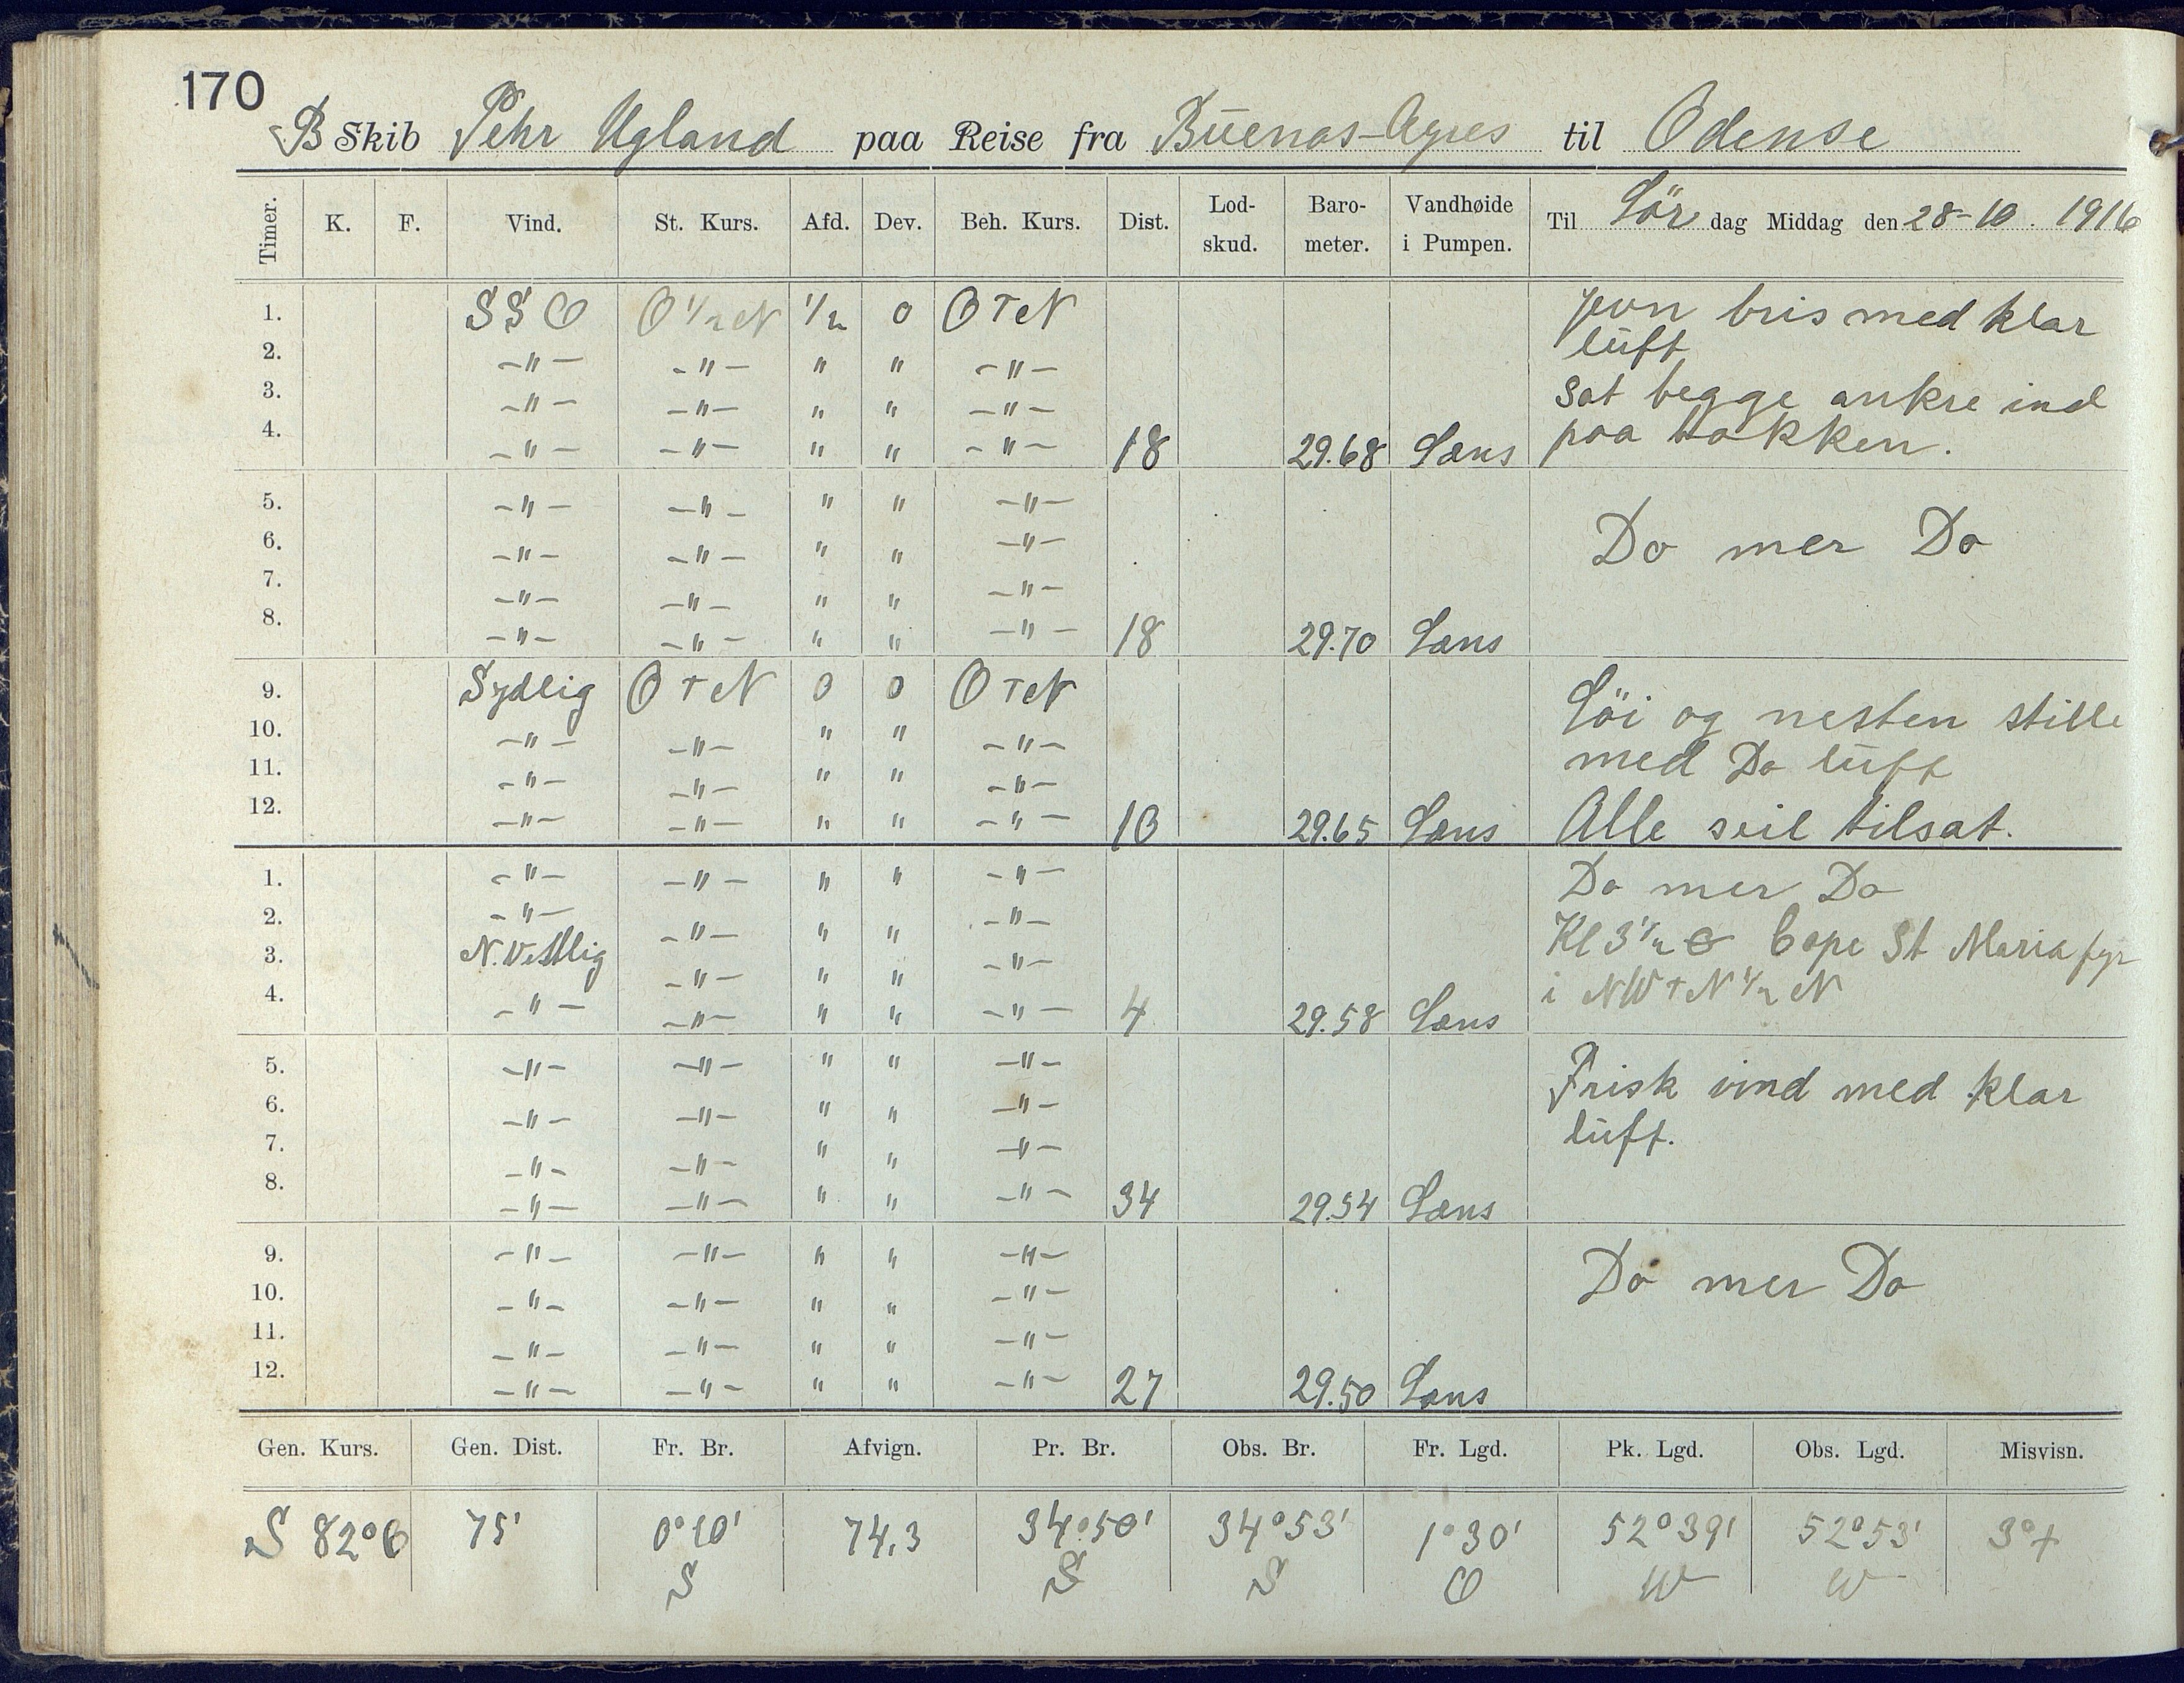 170
B Skib Pehr Ugland paa Reise fra Buenos-Ayres til Odense
Timer. K. F. Vind. St. Kurs. Afd. Dev. Beh. Kurs. Dist. Lod-skud. Baro-meter. Vandhøide i Pumpen. Til Lör dag Middag den 28-10. 1916
1. SSO O 1/2 N 1/2 0 O T N Jevn bris med klar
2. -"- -"- " " -"- luft
3. -"- -"- " " -"- Sat begge ankre ind
4. -"- -"- " " -"- 18 29.68 Læns paa bakken.
5. -"- -"- " " -"-
6. -"- -"- " " -"- Do mer Do
7. -"- -"- " " -"-
8. -"- -"- " " -"- 18 29.70 Læns
9. Sydlig O T N 0 0 O T N Löi og nesten stille
10. -"- -"- " " -"- med Do luft
11. -"- -"- " " -"-
12. -"- -"- " " -"- 10 29.65 Læns Alle seil tilsat.
1. -"- -"- " " -"- Do mer Do
2. -"- -"- " " -"- Kl 3 1/2 Cape St Maria fyr
3. N. Vestlig -"- " " -"- i NW T N 1/2 N
4. -"- -"- " " -"- 4 29.58 Læns
5. -"- -"- " " -"- Frisk vind med klar
6. -"- -"- " " -"- luft.
7. -"- -"- " " -"-
8. -"- -"- " " -"- 34 29.54 Læns
9. -"- -"- " " -"- Do mer Do
10. -"- -"- " " -"-
11. -"- -"- " " -"-
12. -"- -"- " " -"- 27 29.50 Læns
Gen. Kurs. Gen. Dist. Fr. Br. Afvign. Pr. Br. Obs. Br. Fr. Lgd. Pk. Lgd. Obs. Lgd. Misvisn.
S 82° O 75' 0°10' 74,3 34°50' 34°53' 1°30' 52°39' 52°53' 3°+
S S S O W W